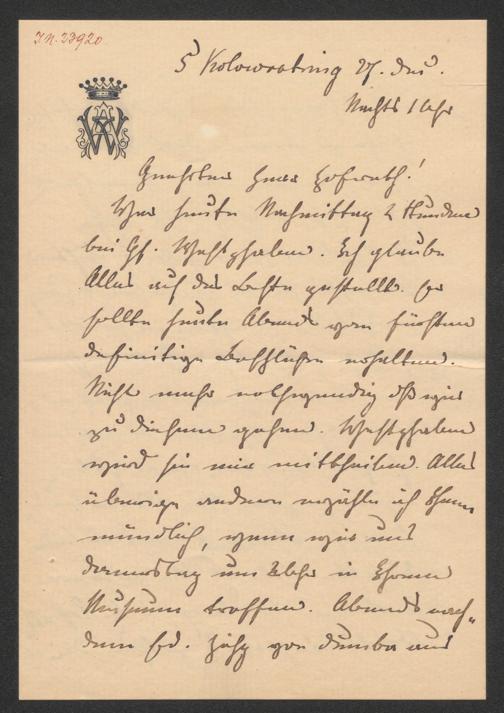 I.N. 33920
5 Kolowratring 27. Dez.
Nachts 1 Uhr
Geehrter Herr Hofrath!
War heute Nachmittag 2 Stunden
bei Gf. Westphalen. Ich glaube
Alles auf das Beste gestellt. Er
sollte heute Abends vom Fürsten
definitive Beschlüsse erhalten.
Nicht mehr nothwendig daß wir
zu diesem gehen. Westphalen
wird sie mir mittheilen. Alles
übrige andere erzähle ich Ihnen
mündlich, wenn wir uns
Donnerstag um Uhr in Ihrem
Museum treffen. Abends nach-
dem von Dumba aus